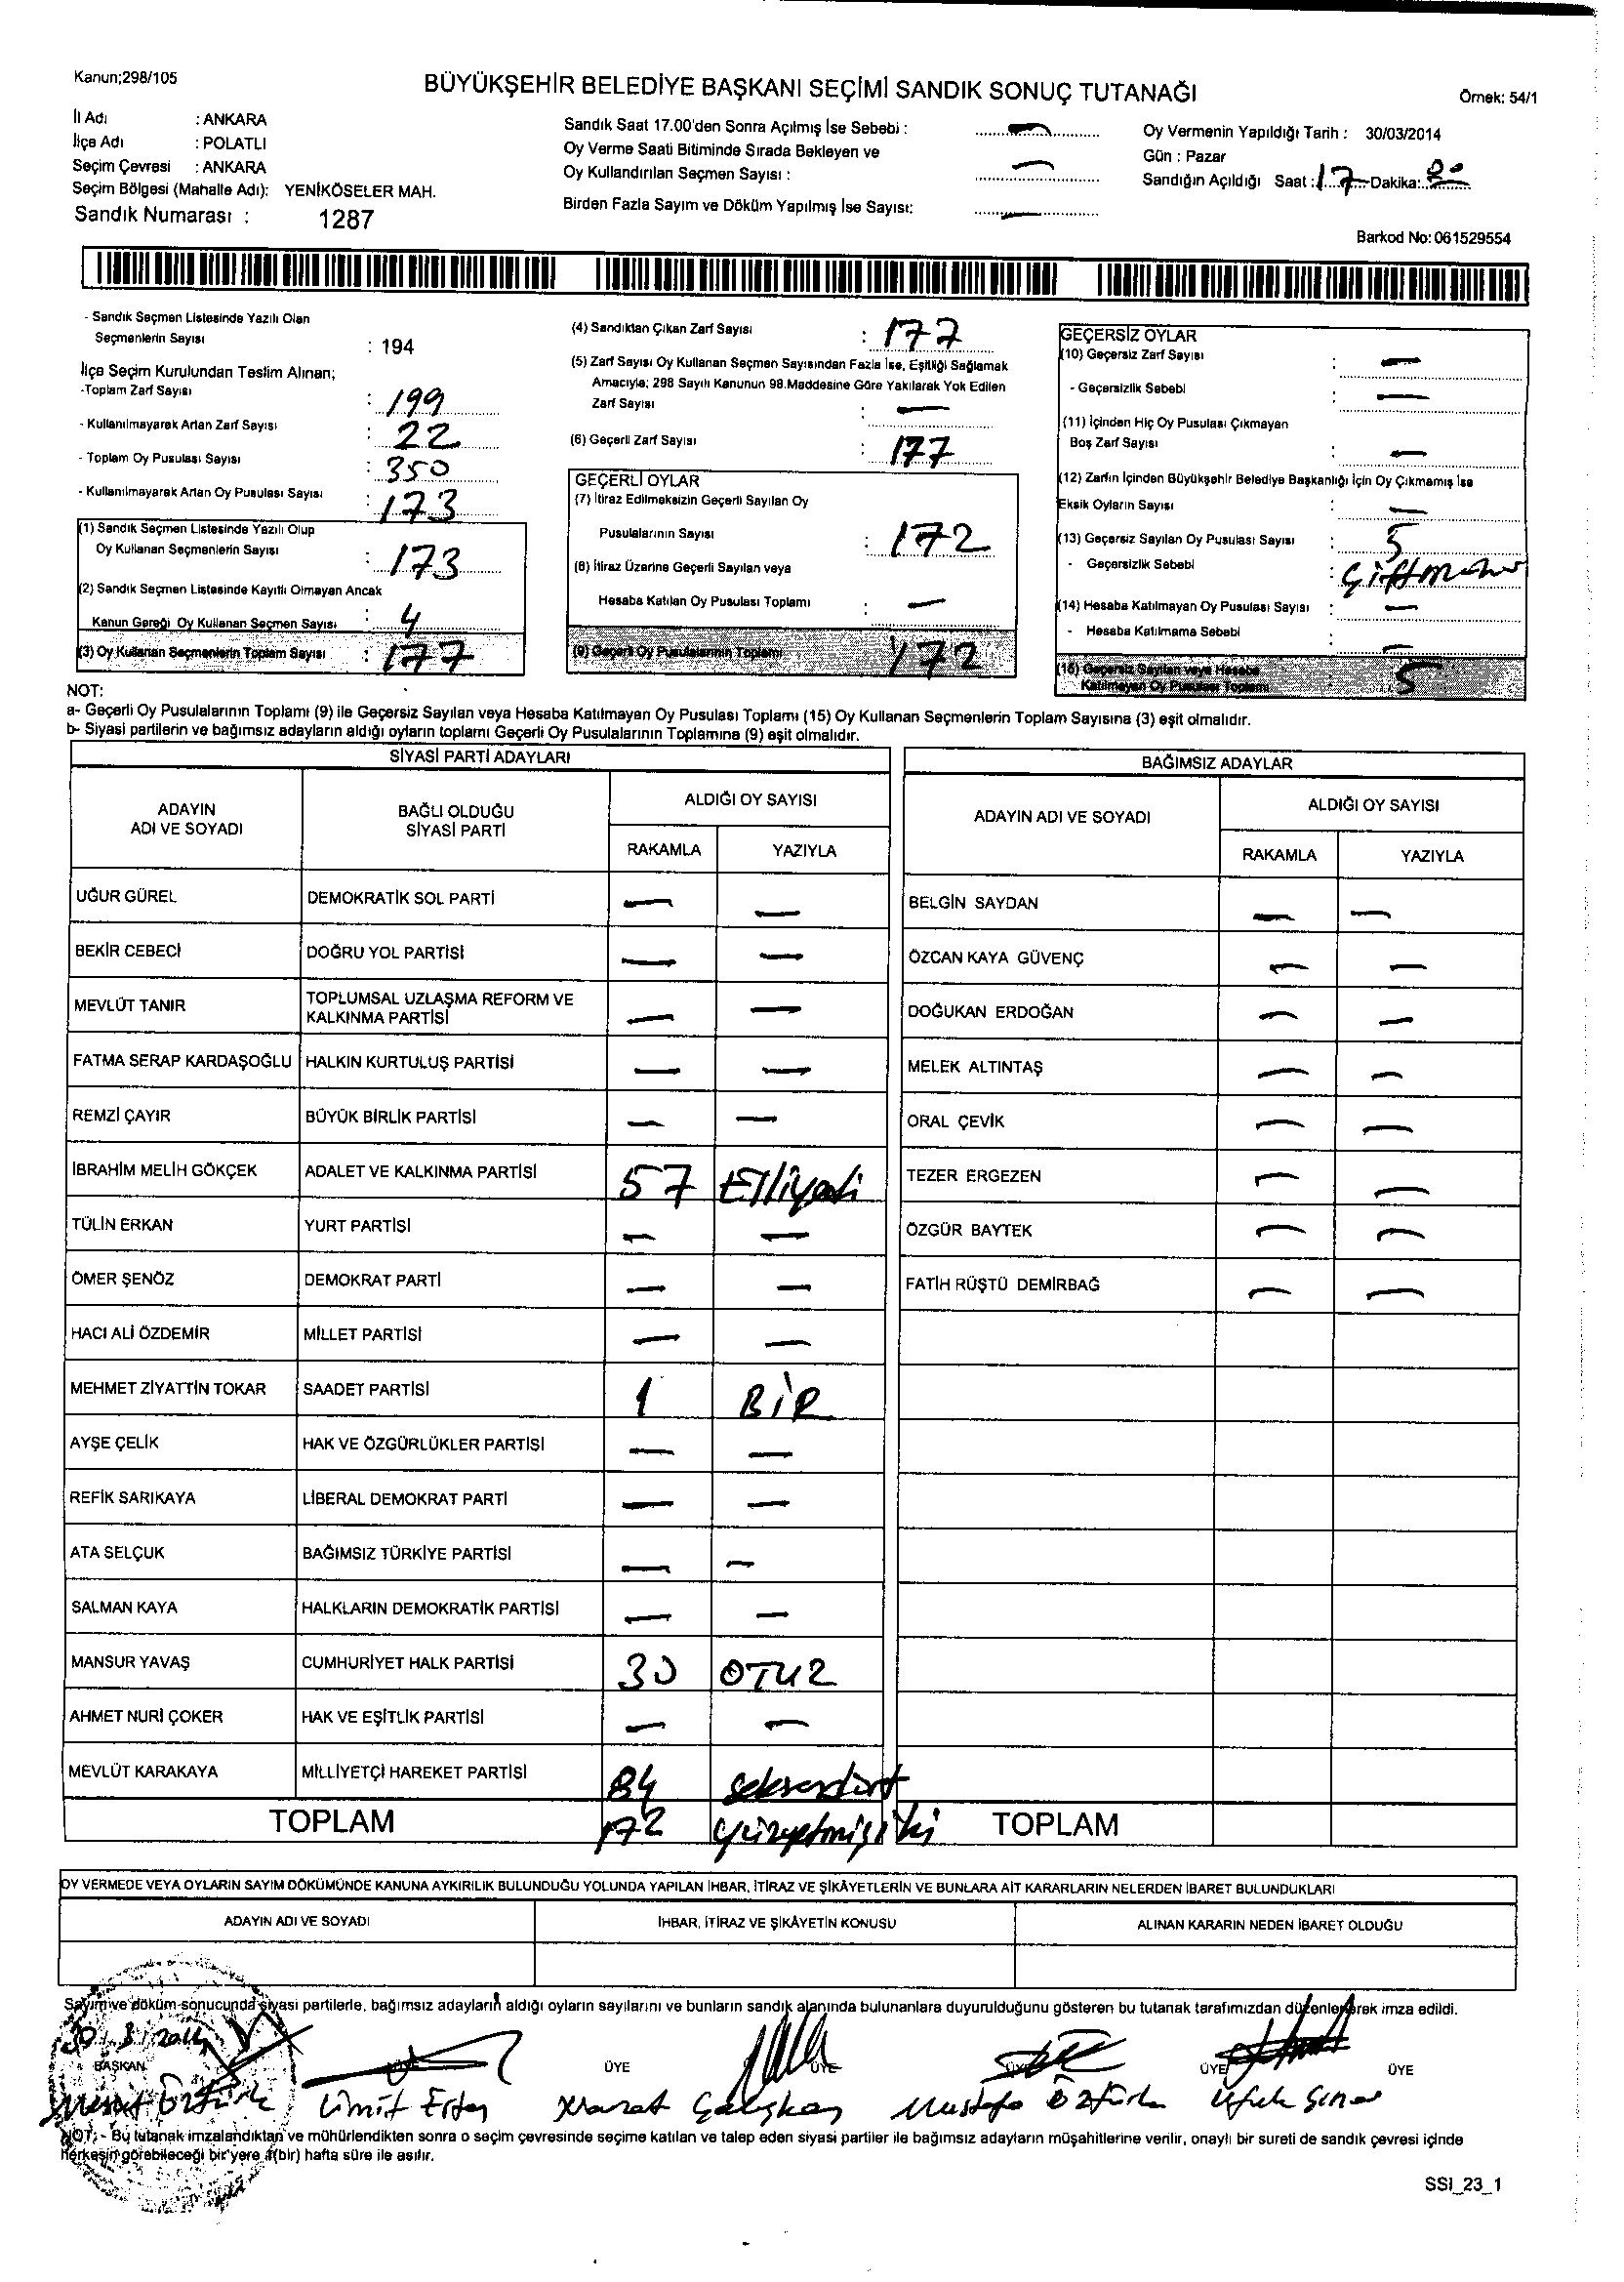 Kanun;298/105
BÜYÜKŞEHİR BELEDİYE BAŞKANI SEÇİMİ SANDIK SONUÇ TUTANAĞI
Örnek: 54/1
İl Adı : ANKARA
İlçe Adı : POLATLI
Seçim Çevresi : ANKARA
Seçim Bölgesi (Mahalle Adı): YENİKÖSELER MAH.
Sandık Numarası : 1287
Sandık Saat 17.00'den Sonra Açılmış İse Sebebi : —
Oy Verme Saati Bitiminde Sırada Bekleyen ve
Oy Kullandırılan Seçmen Sayısı : —
Birden Fazla Sayım ve Döküm Yapılmış İse Sayısı: —
Oy Vermenin Yapıldığı Tarih : 30/03/2014
Gün : Pazar
Sandığın Açıldığı Saat : 17 Dakika:
Barkod No: 061529554
- Sandık Seçmen Listesinde Yazılı Olan
Seçmenlerin Sayısı : 194
İlçe Seçim Kurulundan Teslim Alınan;
-Toplam Zarf Sayısı : 199
- Kullanılmayarak Artan Zarf Sayısı : 22
- Toplam Oy Pusulası Sayısı : 350
- Kullanılmayarak Artan Oy Pusulası Sayısı : 173
(1) Sandık Seçmen Listesinde Yazılı Olup
Oy Kullanan Seçmenlerin Sayısı : 173
(2) Sandık Seçmen Listesinde Kayıtlı Olmayan Ancak
Kanun Gereği Oy Kullanan Seçmen Sayısı : 4
(3) Oy Kullanan Seçmenlerin Toplam Sayısı : 177
(4) Sandıktan Çıkan Zarf Sayısı : 177
(5) Zarf Sayısı Oy Kullanan Seçmen Sayısından Fazla İse, Eşitliği Sağlamak
Amacıyla; 298 Sayılı Kanunun 98.Maddesine Göre Yakılarak Yok Edilen
Zarf Sayısı : —
(6) Geçerli Zarf Sayısı : 177
GEÇERLİ OYLAR
(7) İtiraz Edilmeksizin Geçerli Sayılan Oy
Pusulalarının Sayısı : 172
(8) İtiraz Üzerine Geçerli Sayılan veya
Hesaba Katılan Oy Pusulası Toplamı : —
(9) Geçerli Oy Pusulalarının Toplamı 172
GEÇERSİZ OYLAR
(10) Geçersiz Zarf Sayısı : —
- Geçersizlik Sebebi : —
(11) İçinden Hiç Oy Pusulası Çıkmayan
Boş Zarf Sayısı : —
(12) Zarfın İçinden Büyükşehir Belediye Başkanlığı İçin Oy Çıkmamış İse
Eksik Oyların Sayısı : —
(13) Geçersiz Sayılan Oy Pusulası Sayısı : 5
- Geçersizlik Sebebi :
(14) Hesaba Katılmayan Oy Pusulası Sayısı : —
- Hesaba Katılmama Sebebi : —
(15) Geçersiz Sayılan veya Hesaba
Katılmayan Oy Pusulası Toplamı : 5
NOT:
a- Geçerli Oy Pusulalarının Toplamı (9) ile Geçersiz Sayılan veya Hesaba Katılmayan Oy Pusulası Toplamı (15) Oy Kullanan Seçmenlerin Toplam Sayısına (3) eşit olmalıdır.
b- Siyasi partilerin ve bağımsız adayların aldığı oyların toplamı Geçerli Oy Pusulalarının Toplamına (9) eşit olmalıdır.
SİYASİ PARTİ ADAYLARI
ADAYIN ADI VE SOYADI BAĞLI OLDUĞU SİYASİ PARTİ ALDIĞI OY SAYISI
RAKAMLA YAZIYLA
UĞUR GÜREL DEMOKRATİK SOL PARTİ — —
BEKİR CEBECİ DOĞRU YOL PARTİSİ — —
MEVLÜT TANIR TOPLUMSAL UZLAŞMA REFORM VE KALKINMA PARTİSİ — —
FATMA SERAP KARDAŞOĞLU HALKIN KURTULUŞ PARTİSİ — —
REMZİ ÇAYIR BÜYÜK BİRLİK PARTİSİ — —
İBRAHİM MELİH GÖKÇEK ADALET VE KALKINMA PARTİSİ 57 Elliyedi
TÜLİN ERKAN YURT PARTİSİ — —
ÖMER ŞENÖZ DEMOKRAT PARTİ — —
HACI ALİ ÖZDEMİR MİLLET PARTİSİ — —
MEHMET ZİYATTİN TOKAR SAADET PARTİSİ 1 BİR
AYŞE ÇELİK HAK VE ÖZGÜRLÜKLER PARTİSİ — —
REFİK SARIKAYA LİBERAL DEMOKRAT PARTİ — —
ATA SELÇUK BAĞIMSIZ TÜRKİYE PARTİSİ — —
SALMAN KAYA HALKLARIN DEMOKRATİK PARTİSİ — —
MANSUR YAVAŞ CUMHURİYET HALK PARTİSİ 30 OTUZ
AHMET NURİ ÇOKER HAK VE EŞİTLİK PARTİSİ — —
MEVLÜT KARAKAYA MİLLİYETÇİ HAREKET PARTİSİ 84 Seksendört
TOPLAM 172 Yüzyetmişiki
BAĞIMSIZ ADAYLAR
ADAYIN ADI VE SOYADI ALDIĞI OY SAYISI
RAKAMLA YAZIYLA
BELGİN SAYDAN — —
ÖZCAN KAYA GÜVENÇ — —
DOĞUKAN ERDOĞAN — —
MELEK ALTINTAŞ — —
ORAL ÇEVİK — —
TEZER ERGEZEN — —
ÖZGÜR BAYTEK — —
FATİH RÜŞTÜ DEMİRBAĞ — —
TOPLAM
OY VERMEDE VEYA OYLARIN SAYIM DÖKÜMÜNDE KANUNA AYKIRILIK BULUNDUĞU YOLUNDA YAPILAN İHBAR, İTİRAZ VE ŞİKÂYETLERİN VE BUNLARA AİT KARARLARIN NELERDEN İBARET BULUNDUKLARI
ADAYIN ADI VE SOYADI İHBAR, İTİRAZ VE ŞİKÂYETİN KONUSU ALINAN KARARIN NEDEN İBARET OLDUĞU
Sayım ve döküm sonucunda siyasi partilerle, bağımsız adayların aldığı oyların sayılarını ve bunların sandık alanında bulunanlara duyurulduğunu gösteren bu tutanak tarafımızdan düzenlenerek imza edildi.
30.3.2014
BAŞKAN ÜYE ÜYE ÜYE ÜYE ÜYE
Öztürk Ümit Murat Çalışkan Mustafa Öztürk Ufuk
NOT: - Bu tutanak imzalandıktan ve mühürlendikten sonra o seçim çevresinde seçime katılan ve talep eden siyasi partiler ile bağımsız adayların müşahitlerine verilir, onaylı bir sureti de sandık çevresi içinde
herkesin görebileceği bir yere 1(bir) hafta süre ile asılır.
SSI_23_1